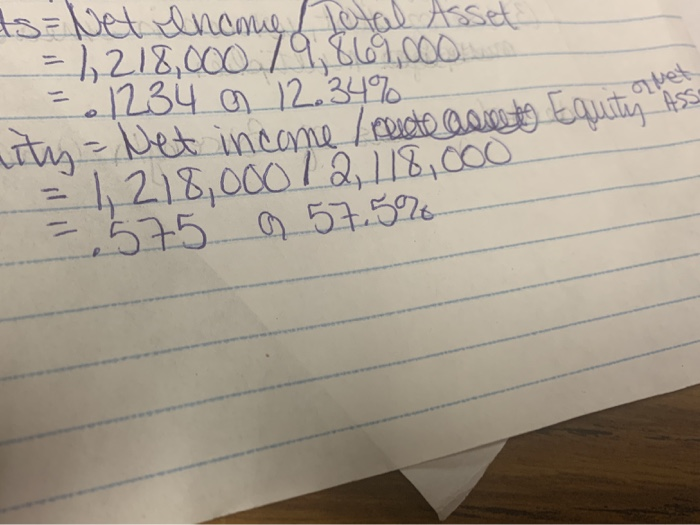 ts = Net Income / Total Asset
= 1,218,000 / 9,869,000
= .1234 or 12.34%
ity = Net income / Equity or Net Ass
= 1,218,000 / 2,118,000
= .575 or 57.5%